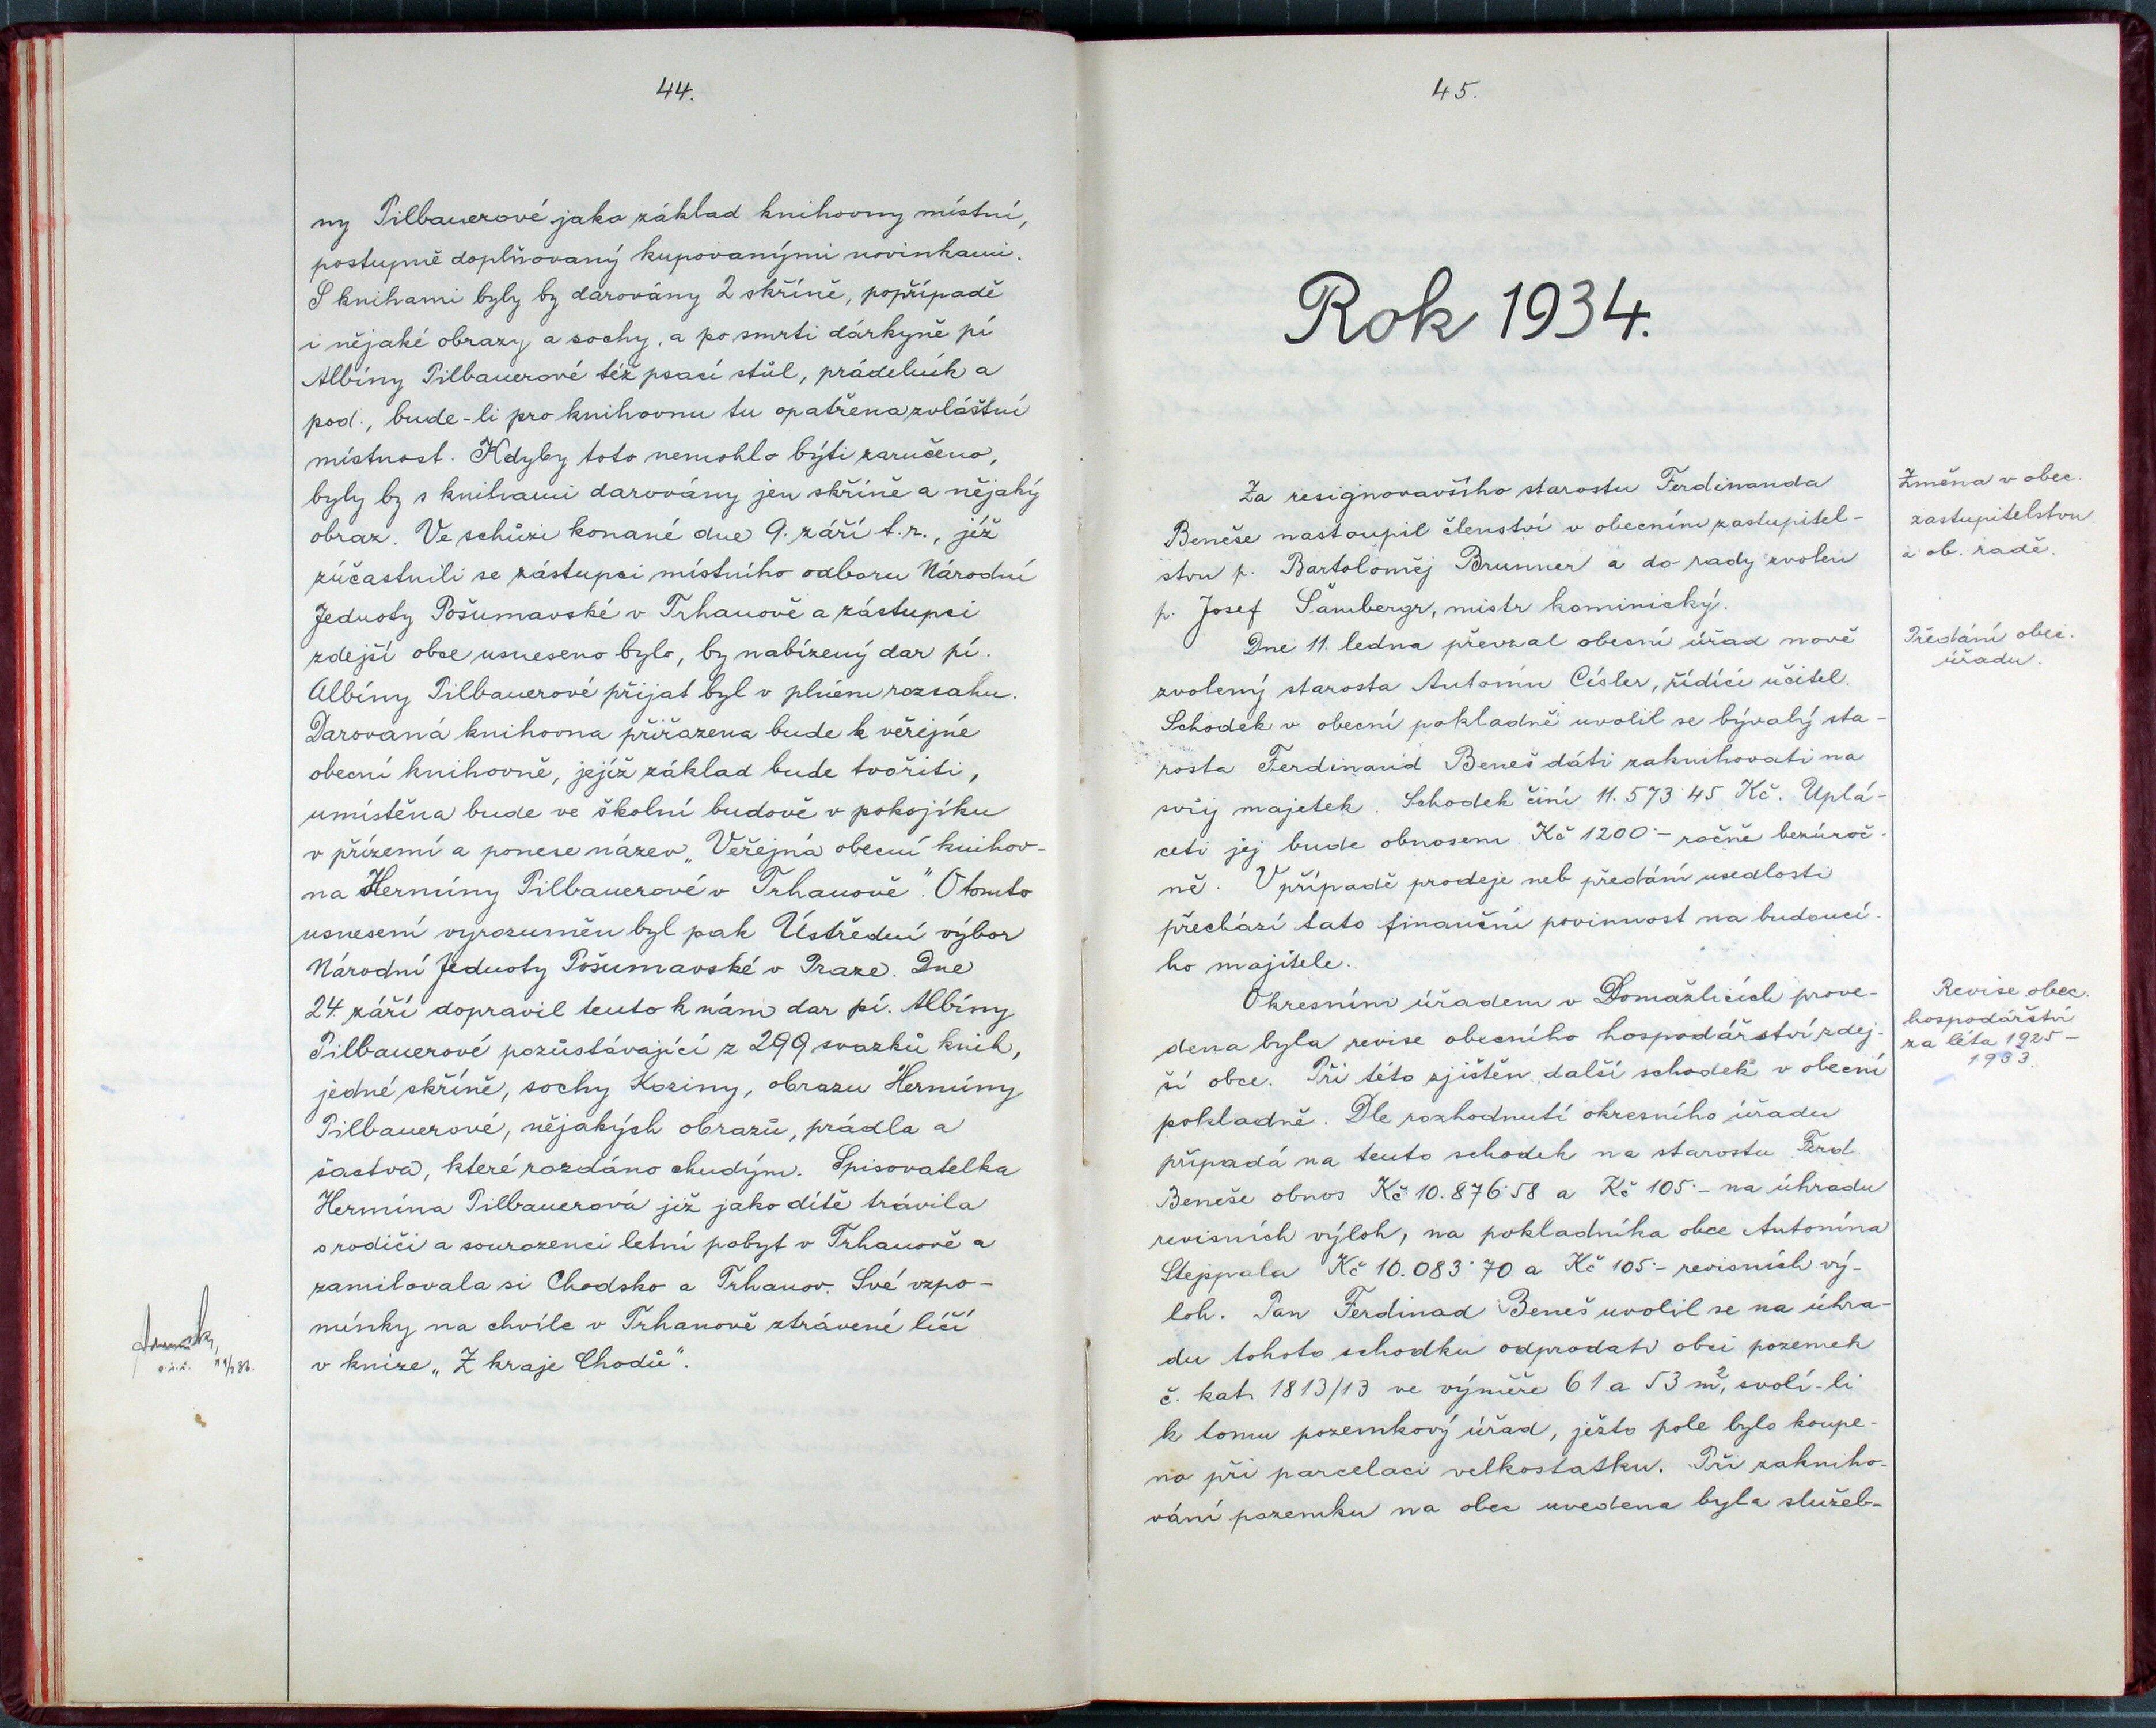 44.
ny Pilbauerové jako základ knihovny místní,
postupně doplňovaný kupovanými novinkami.
S knihami byly by darovány 2 skříně, popřípadě
i nějaké obrazy a sochy, a po smrti dárkyně pí
Albíny Pilbauerové též psací stůl, prádelník a
pod., bude-li pro knihovnu tu opatřena zvláštní
místnost. Kdyby toto nemohlo býti zaručeno,
byly by s knihami darovány jen skříně a nějaký
obraz. Ve schůzi konané dne 9. září t.r., jíž
zúčastnili se zástupci místního odboru Národní
Jednoty Pošumavské v Trhanově a zástupci
zdejší obce usneseno bylo, by nabízený dar pí.
Albíny Pilbauerové přijat byl v plném rozsahu.
Darovaná knihovna přiřazena bude k veřejné
obecní knihovně, jejíž základ bude tvořiti,
umístěna bude ve školní budově v pokojíku
v přízemí a ponese název „Veřejná obecní knihov-
na Hermíny Pilbauerové v Trhanově". O tomto
usnesení vyrozuměn byl pak Ústřední výbor
Národní Jednoty Pošumavské v Praze. Dne
24. září dopravil tento k nám dar pí. Albíny
Pilbauerové pozůstávající z 299 svazků knih,
jedné skříně, sochy Koziny, obrazu Hermíny
Pilbauerové, nějakých obrazů, prádla a
šactva, které rozdáno chudým. Spisovatelka
Hermína Pilbauerová již jako dítě trávila
s rodiči a sourozenci letní pobyt v Trhanově a
zamilovala si Chodsko a Trhanov. Své vzpo-
mínky na chvíle v Trhanově ztrávené líčí
v knize „Z kraje Chodů".
45.
Rok 1934.
Za resignovavšího starostu Ferdinanda
Beneše nastoupil členství v obecním zastupitel-
stvu p. Bartoloměj Brunner a do rady zvolen
p. Josef Šambergr, mistr kominický.
Dne 11. ledna převzal obecní úřad nově
zvolený starosta Antonín Císler, řídící učitel.
Schodek v obecní pokladně uvolil se bývalý sta-
rosta Ferdinand Beneš dáti zaknihovati na
svůj majetek. Schodek činí 11.573·45 Kč. Uplá-
ceti jej bude obnosem Kč 1200·- ročně bezúroč-
ně. V případě prodeje neb předání usedlosti
přechází tato finanční povinnost na budoucí-
ho majitele.
Okresním úřadem v Domažlicích prove-
dena byla revise obecního hospodářství zdej-
ší obce. Při této zjištěn další schodek v obecní
pokladně. Dle rozhodnutí okresního úřadu
připadá na tento schodek na starostu Ferd.
Beneše obnos Kč 10.876·58 a Kč 105·- na úhradu
revisních výloh, na pokladníka obce Antonína
Stejppala Kč 10.083·70 a Kč 105·- revisních vý-
loh. Pan Ferdinad Beneš uvolil se na úhra-
du tohoto schodku odprodati obci pozemek
č. kat. 1813/13 ve výměře 61 a 53 m², svolí-li
k tomu pozemkový úřad, ježto pole bylo koupe-
no při parcelaci velkostatku. Při zakniho-
vání pozemku na obec uvedena byla služeb-
Změna v obec.
zastupitelstvu
a ob. radě.
Předání obec.
úřadu.
Revise obec.
hospodářství
za léta 1925-
1933.